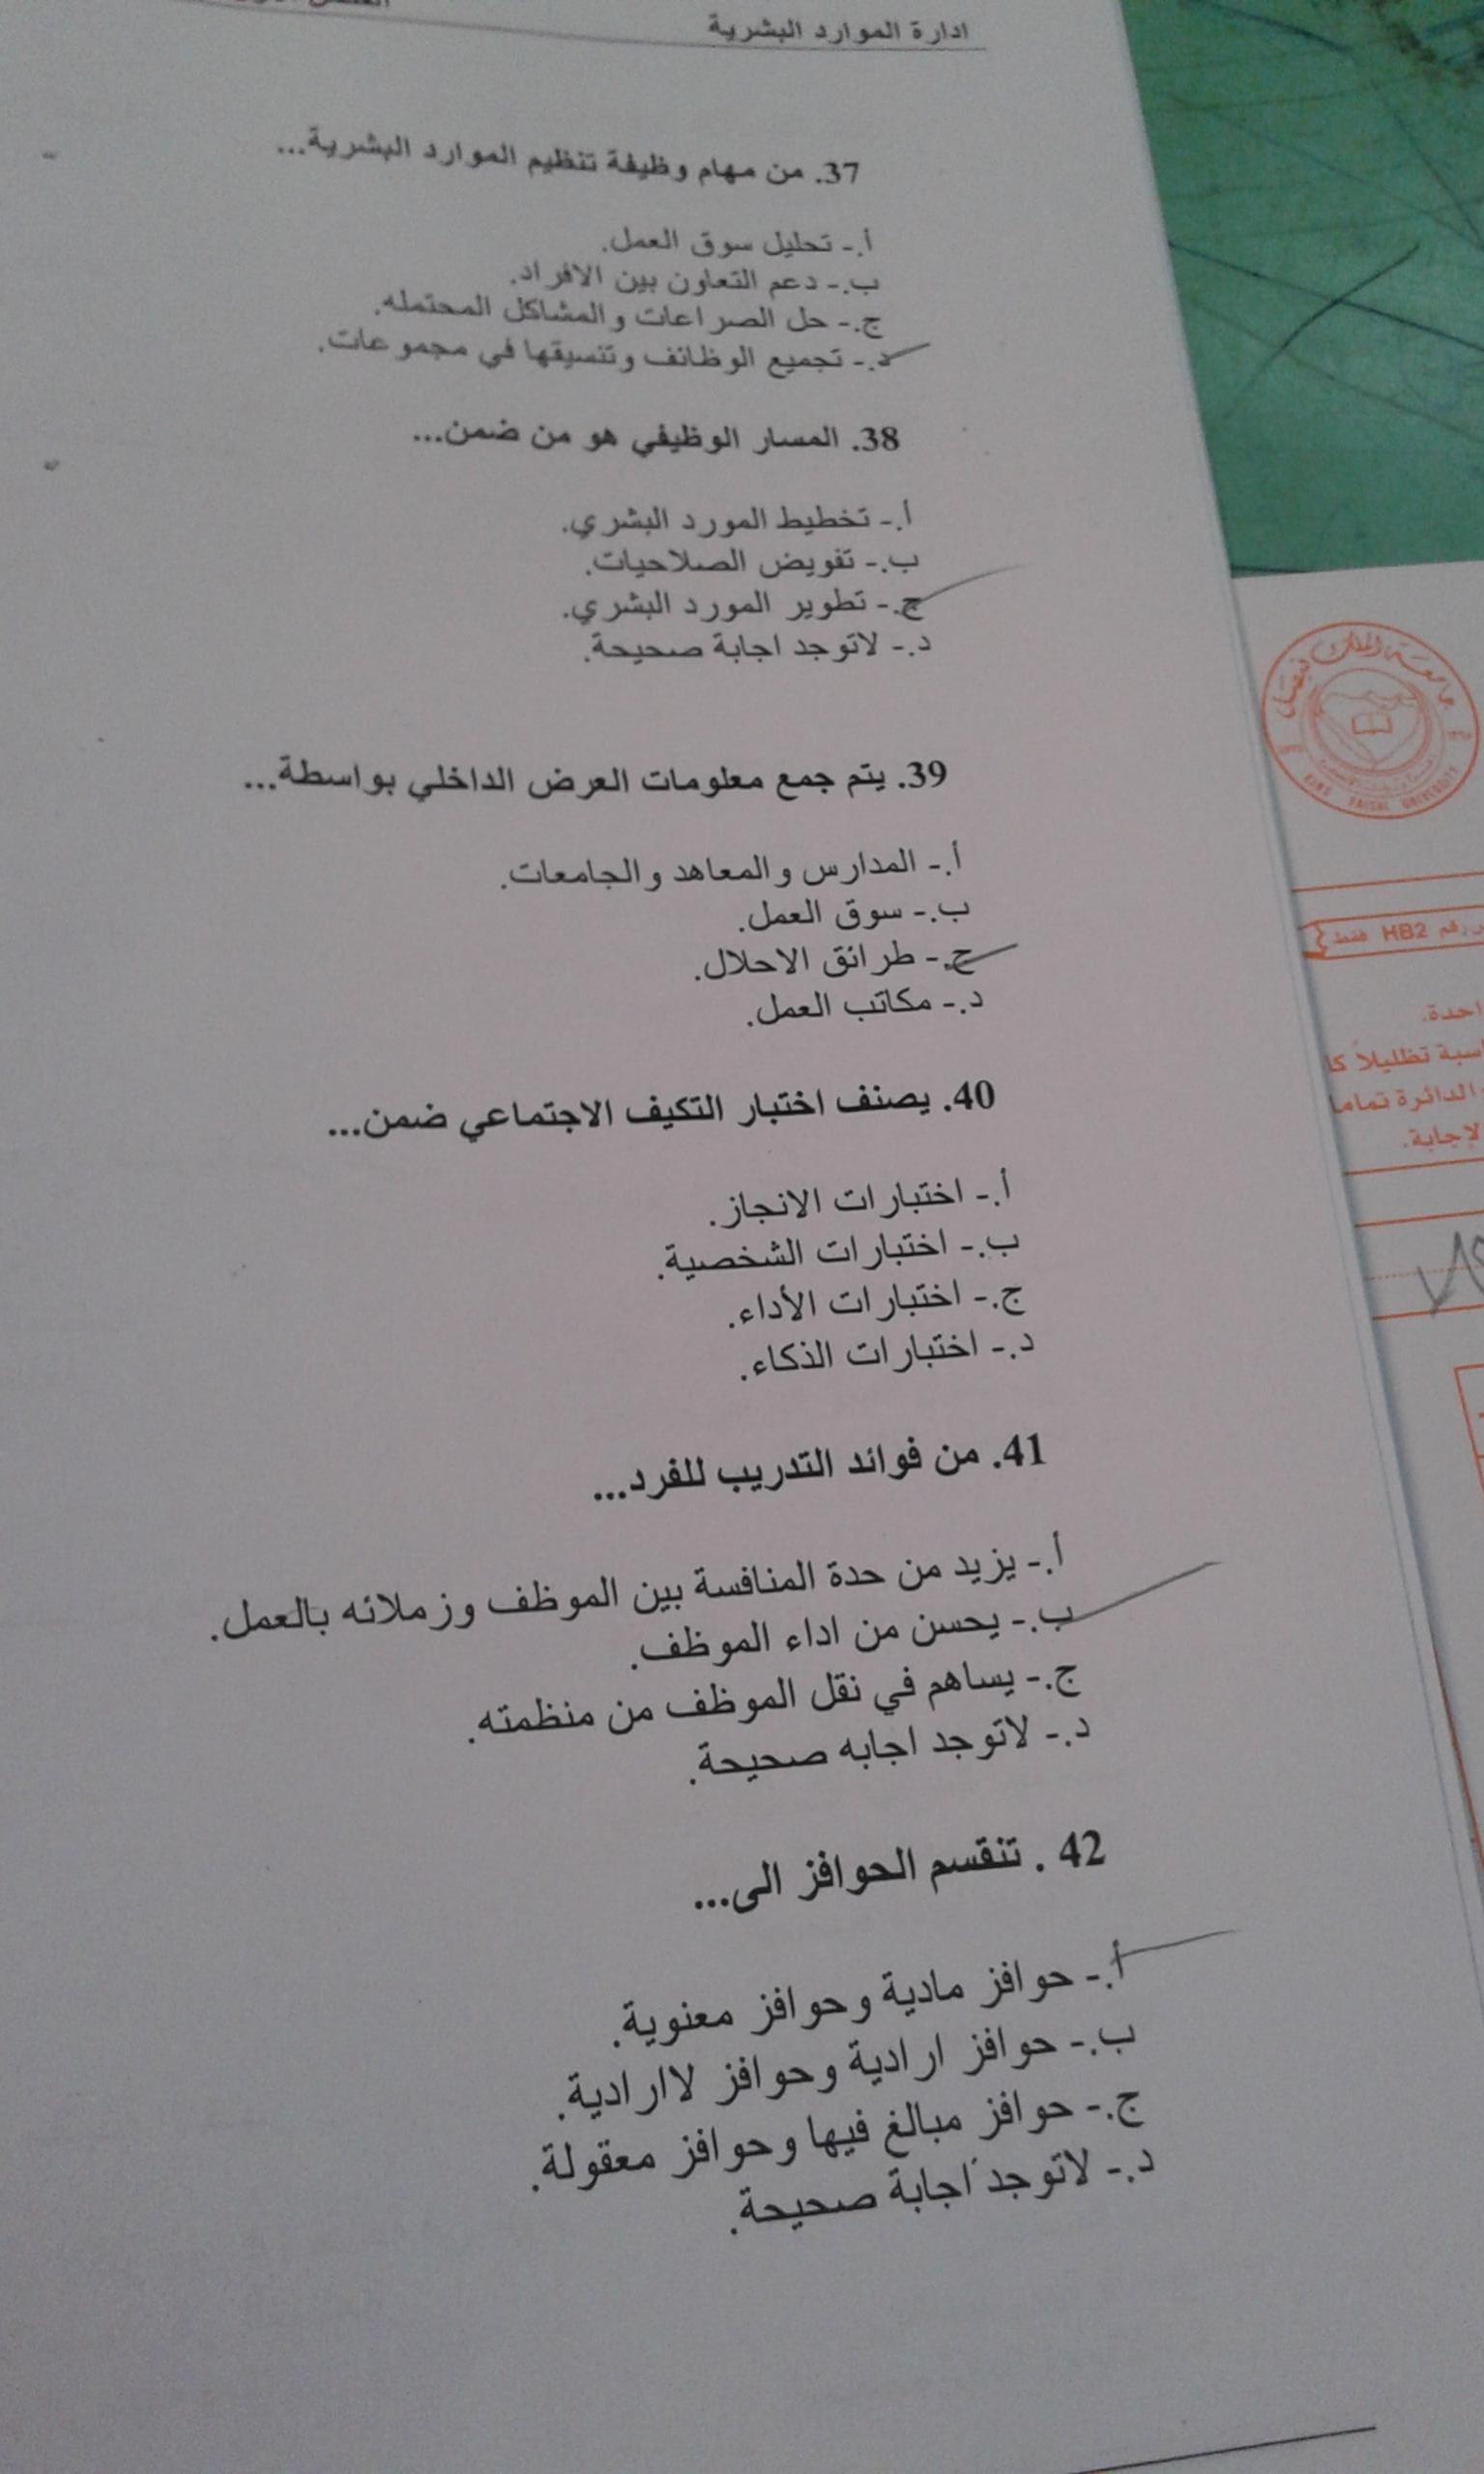 ادارة الموارد البشرية
37. من مهام وظيفة تنظيم الموارد البشرية...
أ.- تحليل سوق العمل.
ب.- دعم التعاون بين الافراد.
ج.- حل الصراعات والمشاكل المحتمله.
د.- تجميع الوظائف وتنسيقها في مجموعات.
38. المسار الوظيفي هو من ضمن...
أ.- تخطيط المورد البشري.
ب.- تفويض الصلاحيات.
ج.- تطوير المورد البشري.
د.- لاتوجد اجابة صحيحة.
39. يتم جمع معلومات العرض الداخلي بواسطة...
أ.- المدارس والمعاهد والجامعات.
ب.- سوق العمل.
ج.- طرائق الاحلال.
د.- مكاتب العمل.
40. يصنف اختبار التكيف الاجتماعي ضمن...
أ.- اختبارات الانجاز.
ب.- اختبارات الشخصية.
ج.- اختبارات الأداء.
د.- اختبارات الذكاء.
41. من فوائد التدريب للفرد...
أ.- يزيد من حدة المنافسة بين الموظف وزملائه بالعمل.
ب.- يحسن من اداء الموظف.
ج.- يساهم في نقل الموظف من منظمته.
د.- لاتوجد اجابه صحيحة.
42 . تنقسم الحوافز الى...
أ.- حوافز مادية وحوافز معنوية.
ب.- حوافز ارادية وحوافز لاارادية.
ج.- حوافز مبالغ فيها وحوافز معقولة.
د.- لاتوجد اجابة صحيحة.
جامعة الملك فيصل
KING FAISAL UNIVERSITY
رقم HB2 فقط
الدائرة تماما